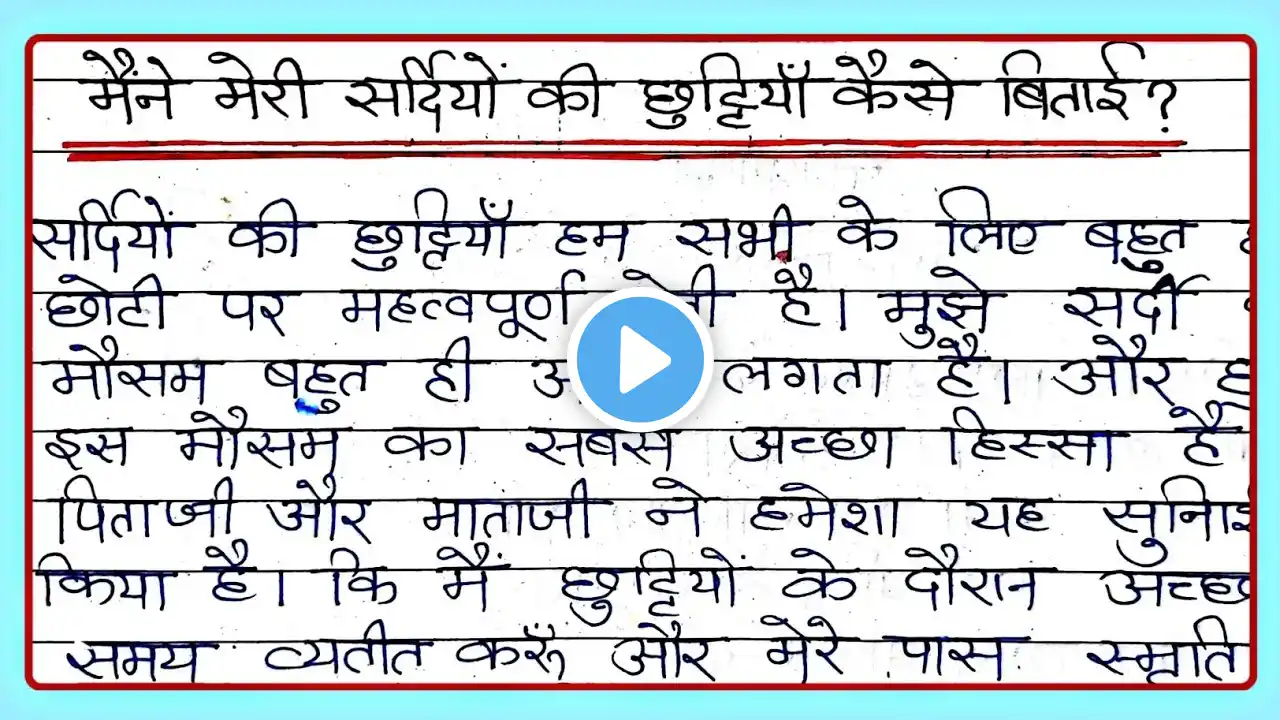 मैंने मेरी सर्दियों की छुट्टियाँ कैसे बिताई?
सर्दियों की छुट्टियाँ हम सभी के लिए बहुत
छोटी पर महत्वपूर्ण है। मुझे सर्दी
मौसम बहुत ही लगता है। और
इस मौसम का सबसे अच्छा हिस्सा है
पिताजी और माताजी ने हमेशा यह
किया है। कि मैं छुट्टियों के दौरान
समय व्यतीत करूँ और मेरे पास